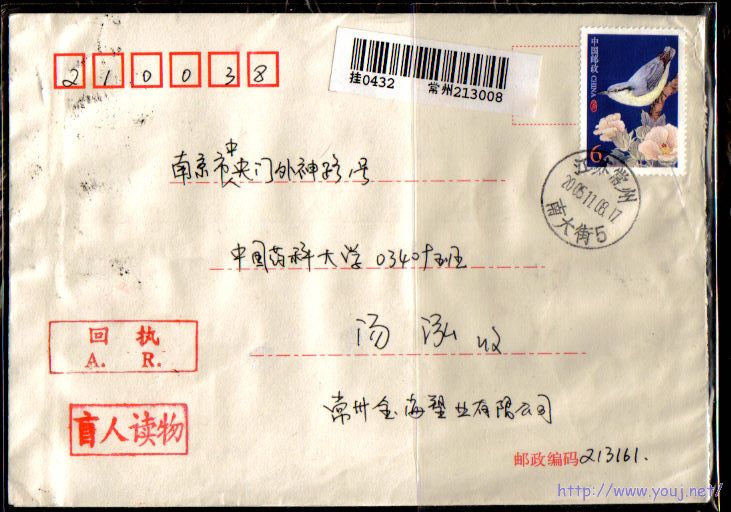 210038
挂0432 常州213008
中国邮政 CHINA
6元
江苏常州
2005.11.08.17
南大街5
南京市中央门外神路1号
中国药科大学0340十五班
汤泓 收
回执
A. R.
盲人读物
常州金海塑业有限公司
邮政编码213161.
http://www.youj.net/